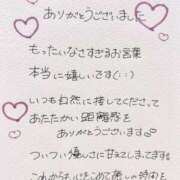 ありがとうございました
もったいなさすぎるお言葉
本当に嬉しいです(:_;)
いつも自然に接してくださって
あたたかい距離感を
ありがとうございます。
ついつい優しさに甘えてしまってます。
これからも心をこめて癒しの時間を